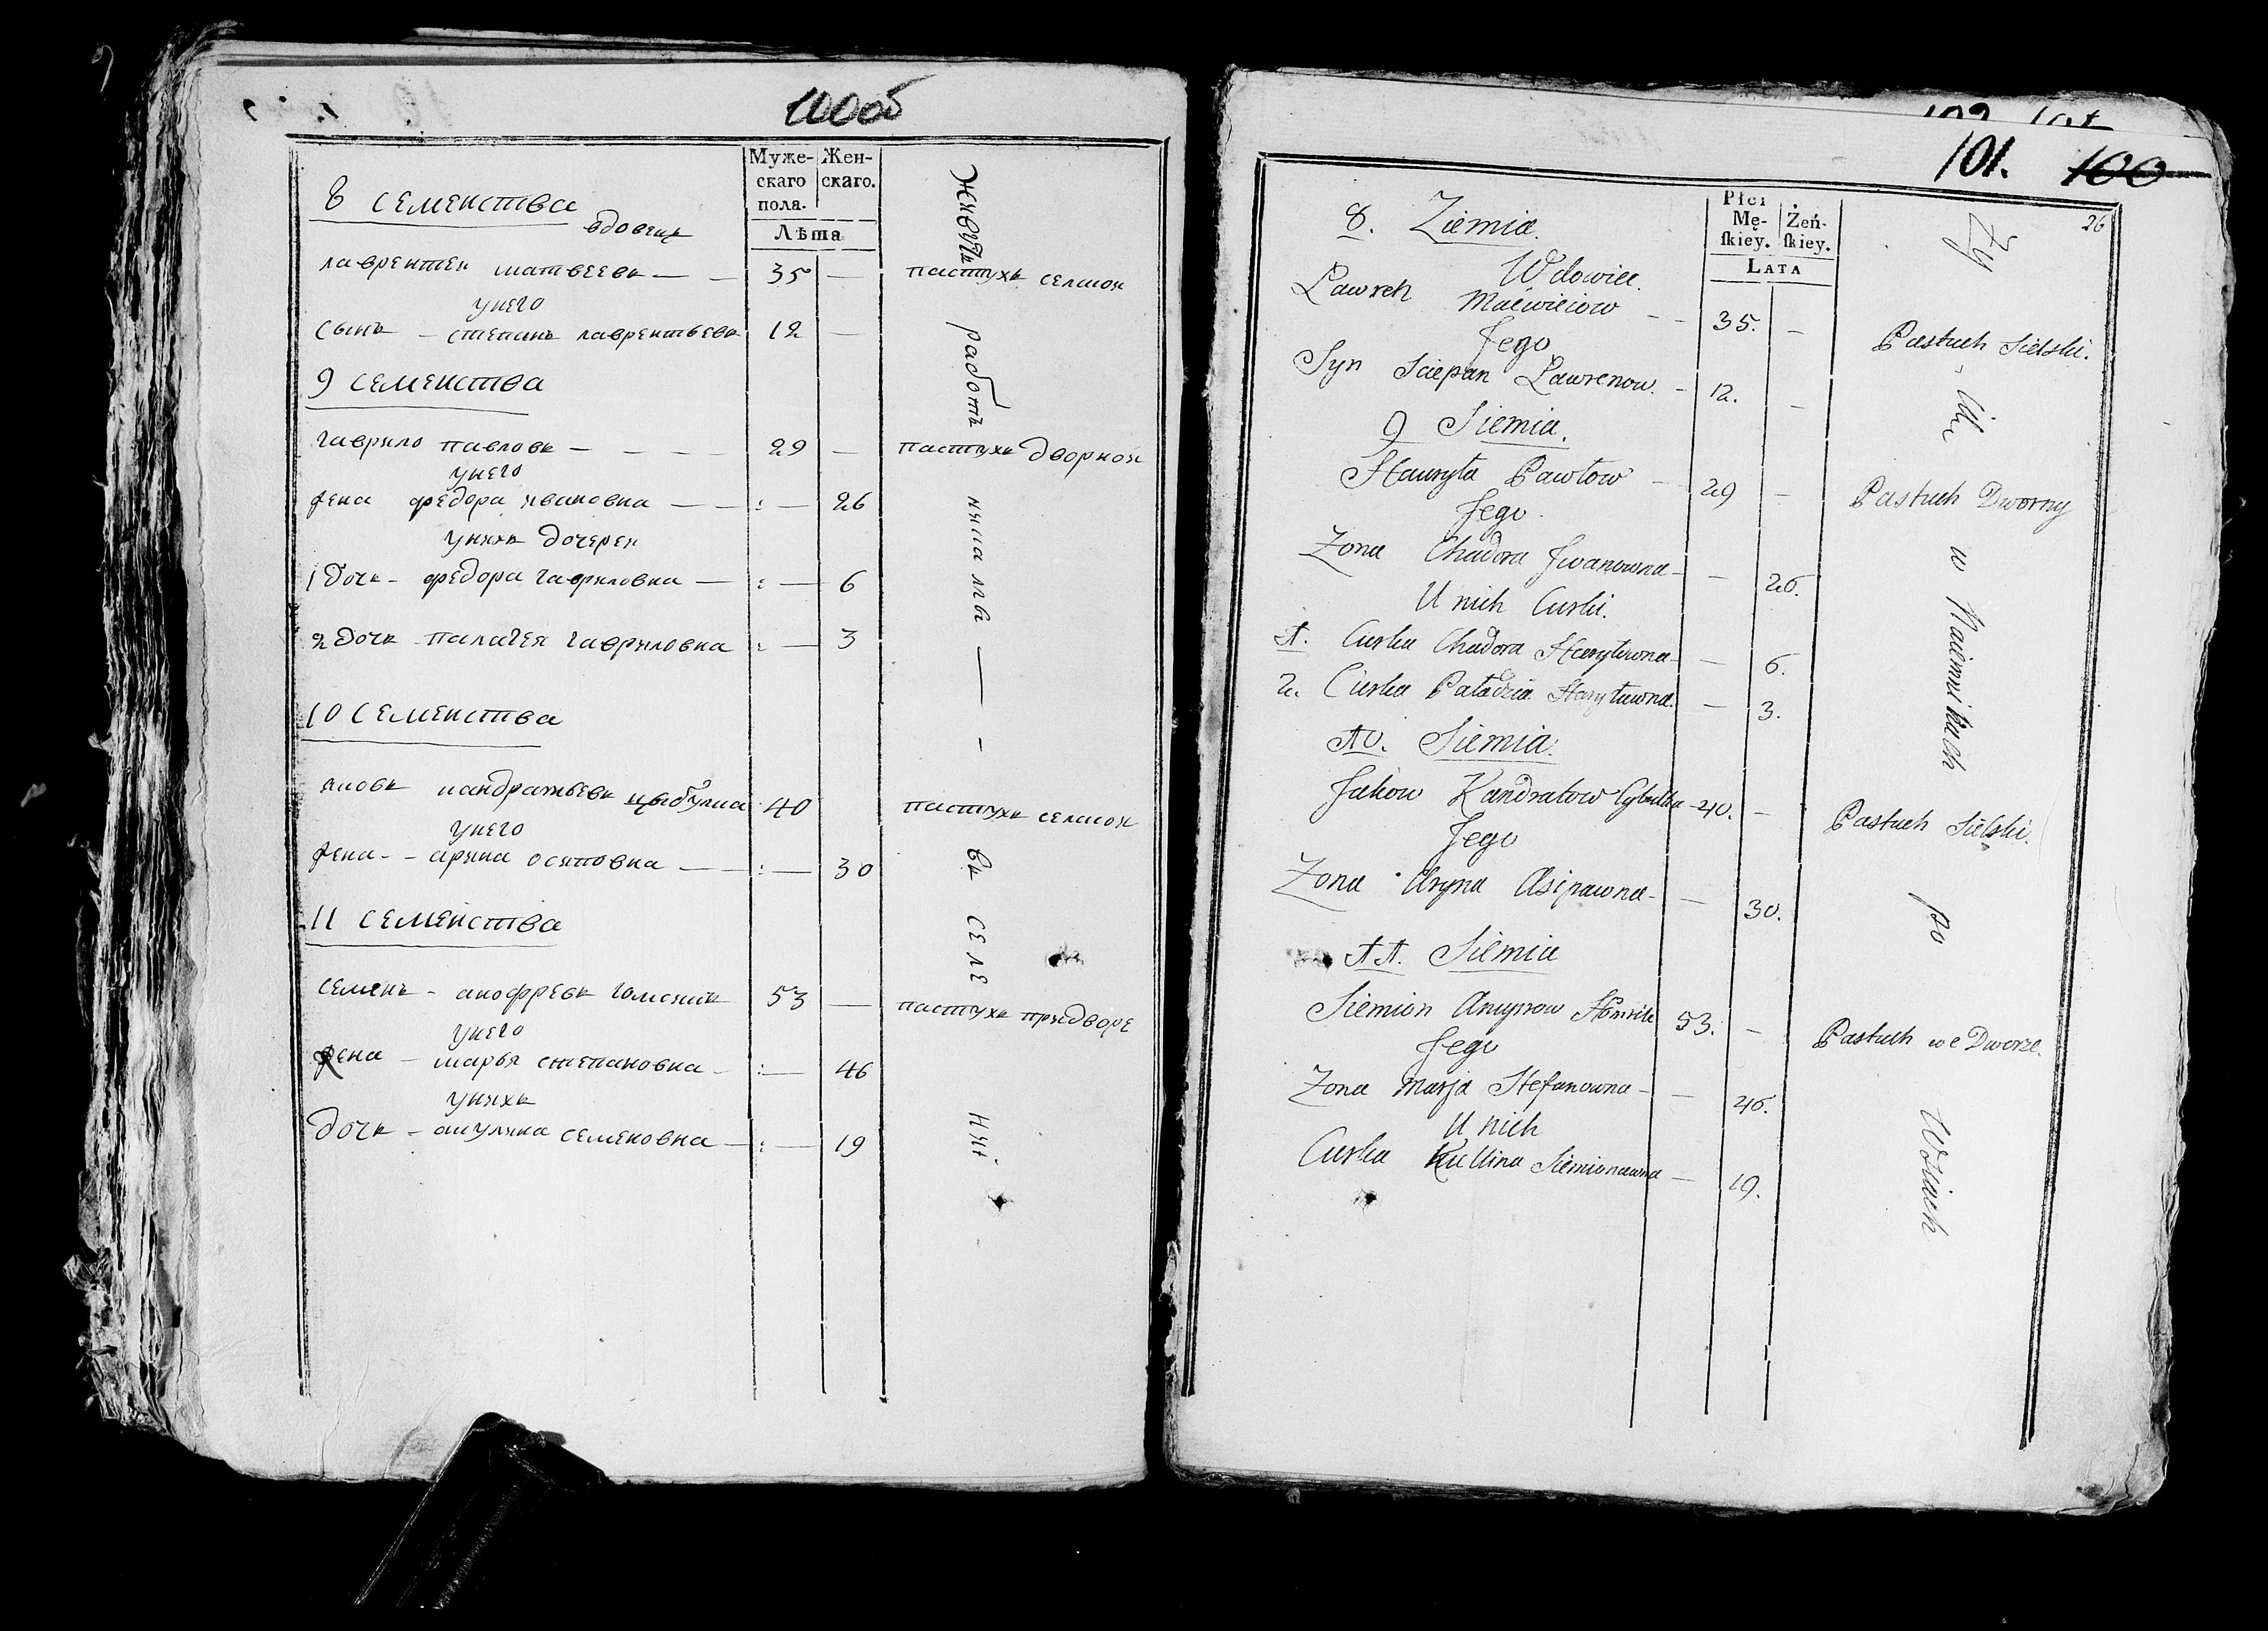 100об
Муже-
скаго
пола.
Жен-
скаго.
Лѣта
8 семейства
вдовецъ
лаврентей матвеевъ — — 35 — пастухъ селской
унего
сынъ — степанъ лаврентьевъ 12 —
9 семейства
гаврило павловъ — — — — 29 — пастухъ дворной
унего
жена федора ивановна — — : — 26
унихъ дочерей
1 дочь — федора гавриловна — : — 6
2 дочь палагея гавриловна : — 3
10 семейства
яковъ кандратьевъ цыбулка 40 пастухъ селской
унего
жена — — арина осиповна — : — 30
11 семейства
семенъ — анофревъ 53 — пастухъ придворе
унего
жена — марья степановна — : — 46
унихъ
дочь — акулина семеновна — : — 19
живутъ
работъ
въ
селе
101. 100
26
Płci
Mę-
ſkiey.
Żeń-
ſkiey.
Lata
8. Ziemia.
Wdowiec.
Ławreh Maćwieiow — — 35. — Pastuch Sielski.
Jego
Syn Sciepan Ławrenow. — 12. —
9 Siemia.
Hawryła Pawłow — 29 — Pastuch Dworny
Jego
Zona Chadora Jwanowna — — 26.
U nich Curki.
1. Curka Chadora Hawryławna — — 6.
2. Curka Paładzia Hawryławna. — 3.
10. Siemia.
Jakow Kandratow Cybulka — 40. — Pastuch Sielski.
Jego
Zona Aryna Asipawna — — 30.
11. Siemia
Siemion 53. — Pastuch we Dworze.
Jego
Zona Marja Stefanowna — — 46.
U nich
Curka Kullina Siemionawna — 19.
Ży
w Naiemnikach
po
Wsiach